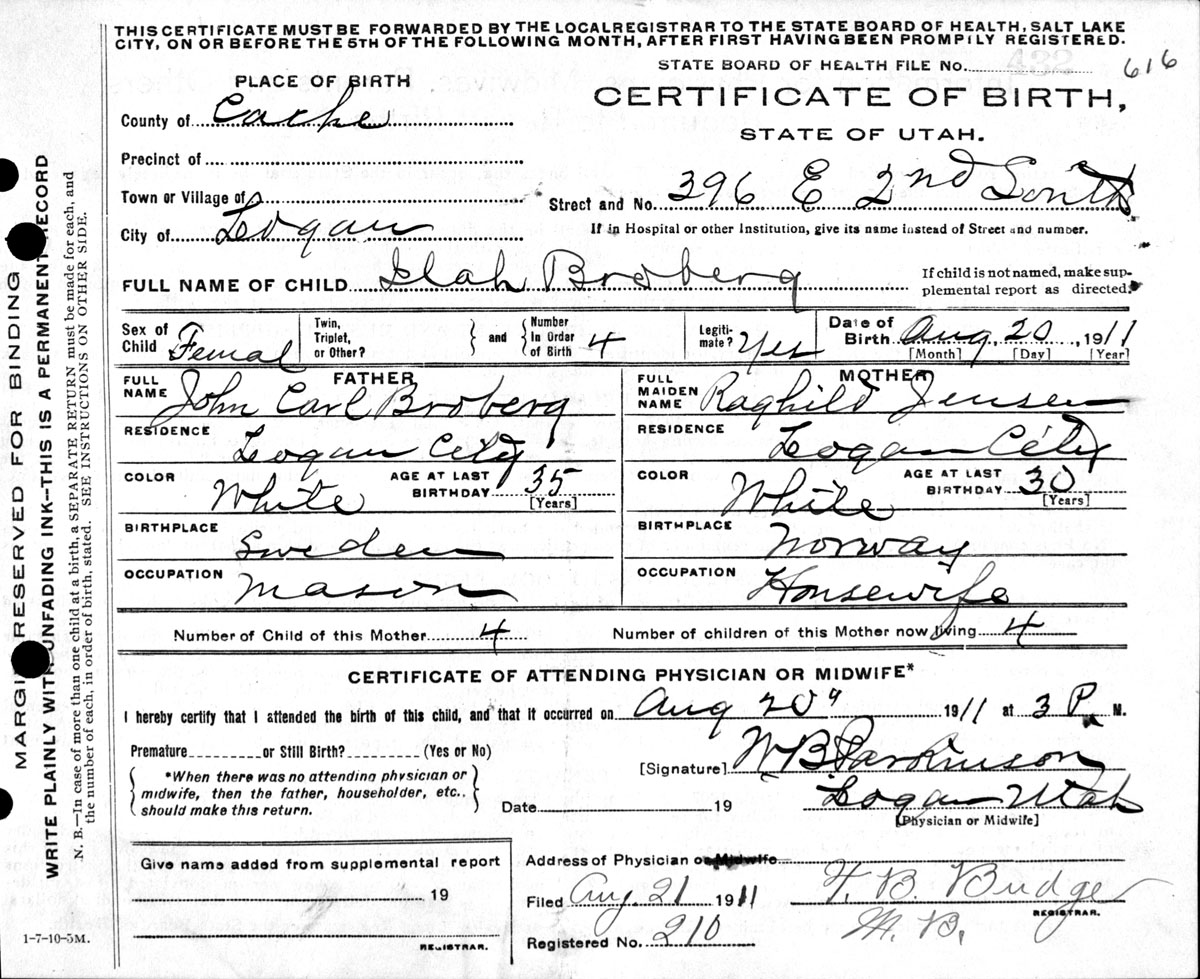 THIS CERTIFICATE MUST BE FORWARDED BY THE LOCAL REGISTRAR TO THE STATE BOARD OF HEALTH, SALT LAKE
CITY, ON OR BEFORE THE 5TH OF THE FOLLOWING MONTH, AFTER FIRST HAVING BEEN PROMPTLY REGISTERED.
STATE BOARD OF HEALTH FILE No. 616
PLACE OF BIRTH
CERTIFICATE OF BIRTH,
STATE OF UTAH.
County of Cache
Precinct of
Town or Village of
Street and No. 396 E 2nd South
City of Logan
If in Hospital or other Institution, give its name instead of Street and number.
FULL NAME OF CHILD Ilah Broberg
If child is not named, make sup-
plemental report as directed.
Sex of Child Femal
Twin, Triplet, or Other?
and
Number In Order of Birth 4
Legiti- mate? Yes
Date of Birth Aug. 20, 1911
[Month] [Day] [Year]
FATHER
FULL NAME John Carl Broberg
RESIDENCE Logan City
COLOR White
AGE AT LAST BIRTHDAY 35 [Years]
BIRTHPLACE Sweden
OCCUPATION Mason
MOTHER
FULL MAIDEN NAME Raghild Jensen
RESIDENCE Logan City
COLOR White
AGE AT LAST BIRTHDAY 30 [Years]
BIRTHPLACE Norway
OCCUPATION Housewife
Number of Child of this Mother 4
Number of children of this Mother now living 4
CERTIFICATE OF ATTENDING PHYSICIAN OR MIDWIFE*
I hereby certify that I attended the birth of this child, and that it occurred on Aug 20" 1911 at 3 P. M.
Premature or Still Birth? (Yes or No)
*When there was no attending physician or
midwife, then the father, householder, etc..
should make this return.
[Signature] W B Parkinson
Date 19
Logan Utah
[Physician or Midwife]
Give name added from supplemental report
19
REGISTRAR.
Address of Physician or Midwife
Filed Aug. 21 1911
T. B. Budge
M. D.
REGISTRAR.
Registered No. 210
1-7-10-5M.
MARGIN RESERVED FOR BINDING
WRITE PLAINLY WITH UNFADING INK—THIS IS A PERMANENT RECORD
N. B.—In case of more than one child at a birth, a SEPARATE RETURN must be made for each, and
the number of each, in order of birth, stated. SEE INSTRUCTIONS ON OTHER SIDE.